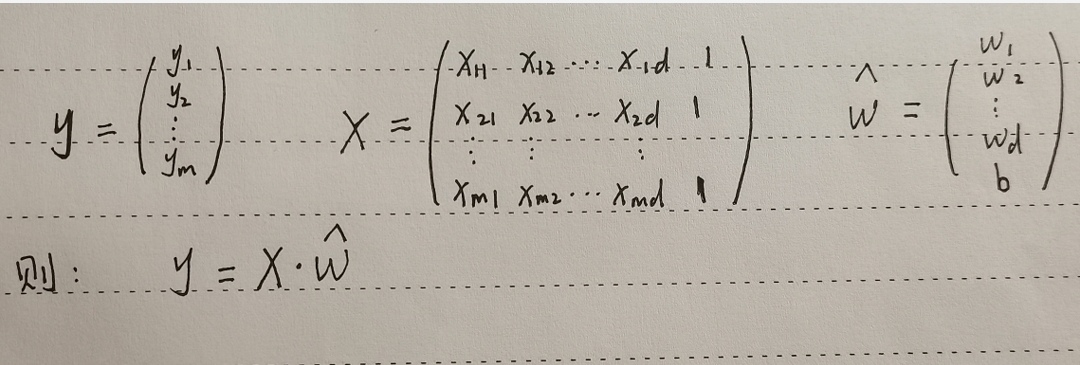 y = \begin{pmatrix} y_1 \\ y_2 \\ \vdots \\ y_m \end{pmatrix} X = \begin{pmatrix} x_{11} & x_{12} & \cdots & x_{1d} & 1 \\ x_{21} & x_{22} & \cdots & x_{2d} & 1 \\ \vdots & \vdots & & \vdots & \\ x_{m1} & x_{m2} & \cdots & x_{md} & 1 \end{pmatrix} \hat{w} = \begin{pmatrix} w_1 \\ w_2 \\ \vdots \\ w_d \\ b \end{pmatrix}
则: y = X · \hat{w}